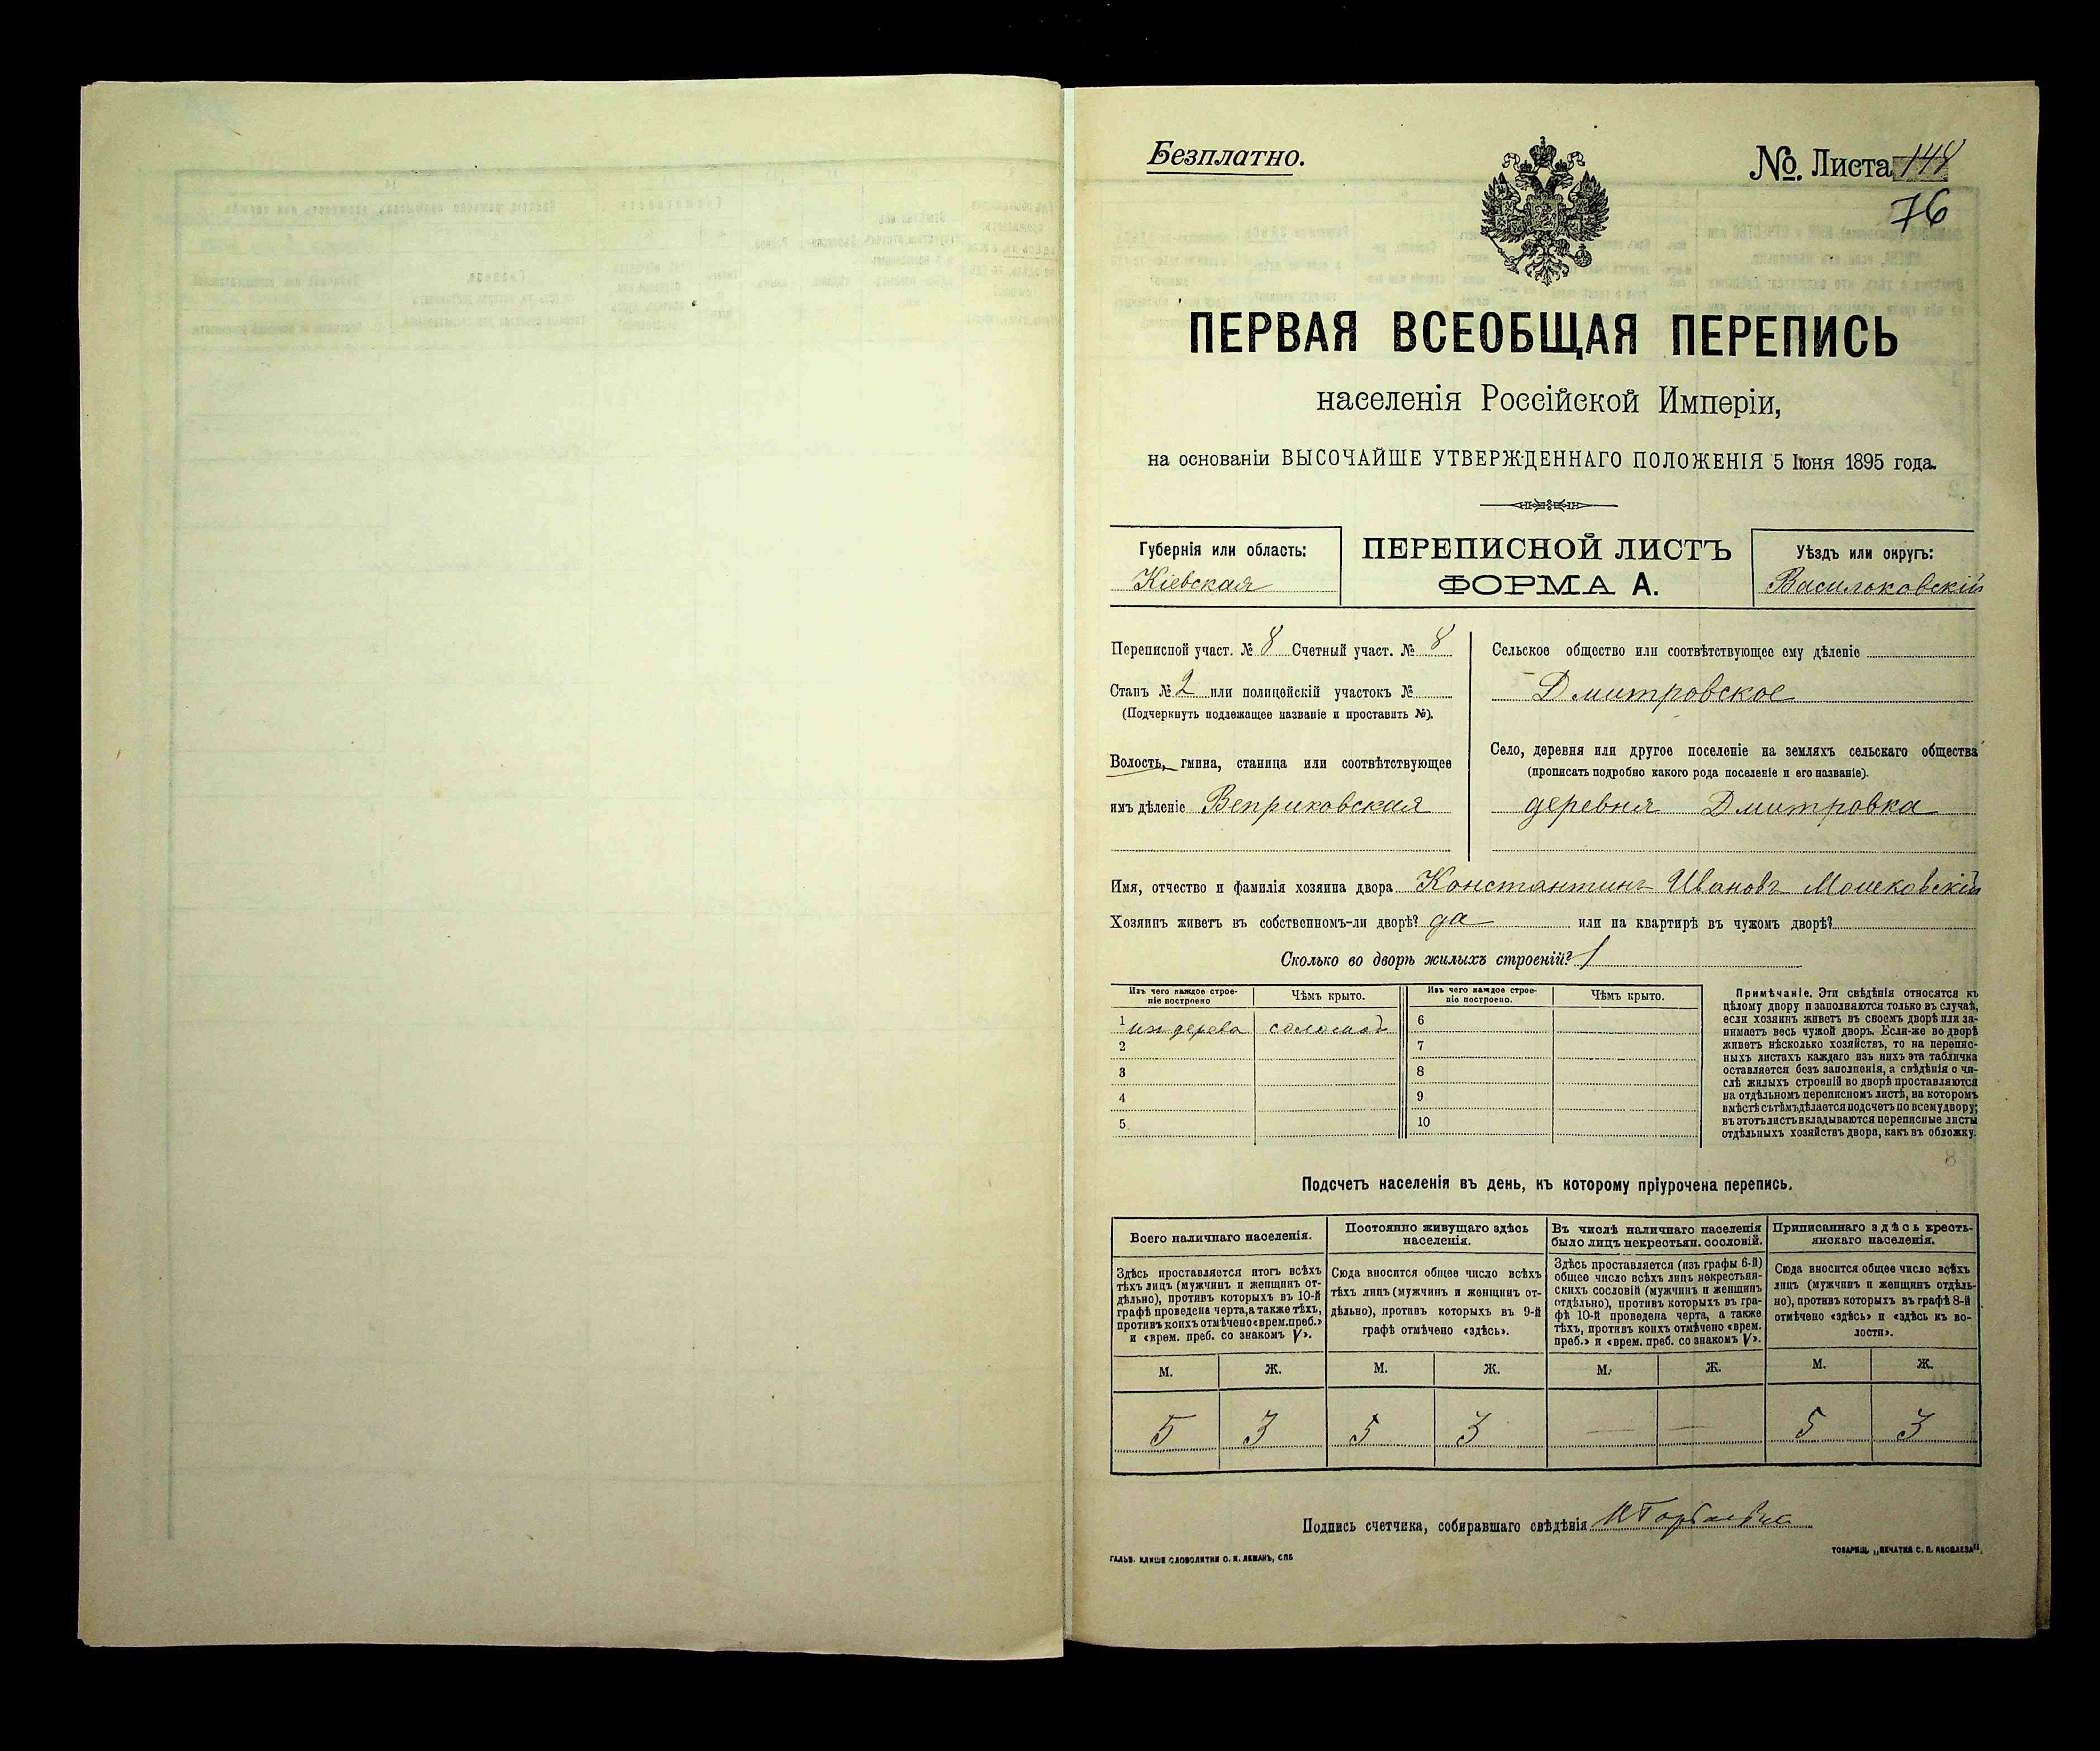 Безплатно.
№. Листа 148
76
ПЕРВАЯ ВСЕОБЩАЯ ПЕРЕПИСЬ
населенія Россійской Имперіи,
на основаніи ВЫСОЧАЙШЕ УТВЕРЖДЕННАГО ПОЛОЖЕНІЯ 5 Іюня 1895 года.
Губернія или область:
Кіевская
ПЕРЕПИСНОЙ ЛИСТЪ
ФОРМА А.
Уѣздъ или округъ:
Васильковскій
Переписной участ. № 8 Счетный участ. № 8
Станъ № 2 или полицейскій участокъ №
(Подчеркнуть подлежащее названіе и проставить №).
Волость, гмина, станица или соотвѣтствующее
имъ дѣленіе Веприковская
Сельское общество или соотвѣтствующее ему дѣленіе
Дмитровское
Село, деревня или другое поселеніе на земляхъ сельскаго общества
(прописать подробно какого рода поселеніе и его названіе).
деревня Дмитровка
Имя, отчество и фамилія хозяина двора Константинъ Ивановъ Мошковскій
Хозяинъ живетъ въ собственномъ-ли дворѣ? да или на квартирѣ въ чужомъ дворѣ?
Сколько во дворѣ жилыхъ строеній? 1
Изъ чего каждое строе-
ніе построено
Чѣмъ крыто.
Изъ чего каждое строе-
ніе построено.
Чѣмъ крыто.
1 изъ дерева соломой 6
2 7
3 8
4 9
5 10
Примѣчаніе. Эти свѣдѣнія относятся къ
цѣлому двору и заполняются только въ случаѣ,
если хозяинъ живетъ въ своемъ дворѣ или за-
нимаетъ весь чужой дворъ. Если-же во дворѣ
живетъ нѣсколько хозяйствъ, то на перепис-
ныхъ листахъ каждаго изъ нихъ эта табличка
оставляется безъ заполненія, а свѣдѣнія о чи-
слѣ жилыхъ строеній во дворѣ проставляются
на отдѣльномъ переписномъ листѣ, на которомъ
вмѣстѣ съ тѣмъ дѣлается подсчетъ по всему двору;
въ этотъ листъ вкладываются переписные листы
отдѣльныхъ хозяйствъ двора, какъ въ обложку.
Подсчетъ населенія въ день, къ которому пріурочена перепись.
Всего наличнаго населенія.
Здѣсь проставляется итогъ всѣхъ
тѣхъ лицъ (мужчинъ и женщинъ от-
дѣльно), противъ которыхъ въ 10-й
графѣ проведена черта, а также тѣхъ,
противъ коихъ отмѣчено «врем. преб.»
и «врем. преб. со знакомъ V».
Постоянно живущаго здѣсь
населенія.
Сюда вносится общее число всѣхъ
тѣхъ лицъ (мужчинъ и женщинъ от-
дѣльно), противъ которыхъ въ 9-й
графѣ отмѣчено «здѣсь».
Въ числѣ наличнаго населенія
было лицъ некрестьян. сословій.
Здѣсь проставляется (изъ графы 6-й)
общее число всѣхъ лицъ некрестьян-
скихъ сословій (мужчинъ и женщинъ
отдѣльно), противъ которыхъ въ гра-
фѣ 10-й проведена черта, а также
тѣхъ, противъ коихъ отмѣчено «врем.
преб.» и «врем. преб. со знакомъ V».
Приписаннаго здѣсь кресть-
янскаго населенія.
Сюда вносится общее число всѣхъ
лицъ (мужчинъ и женщинъ отдѣль-
но), противъ которыхъ въ графѣ 8-й
отмѣчено «здѣсь» и «здѣсь въ во-
лости».
М. Ж. М. Ж. М. Ж. М. Ж.
5 3 5 3 — — 5 3
Подпись счетчика, собиравшаго свѣдѣнія
ГАЛЬВ. КЛИШЕ СЛОВОЛИТНИ О. И. ЛЕМАНЪ, СПБ
ТОВАРИЩ. „ПЕЧАТНЯ С. П. ЯКОВЛЕВА".